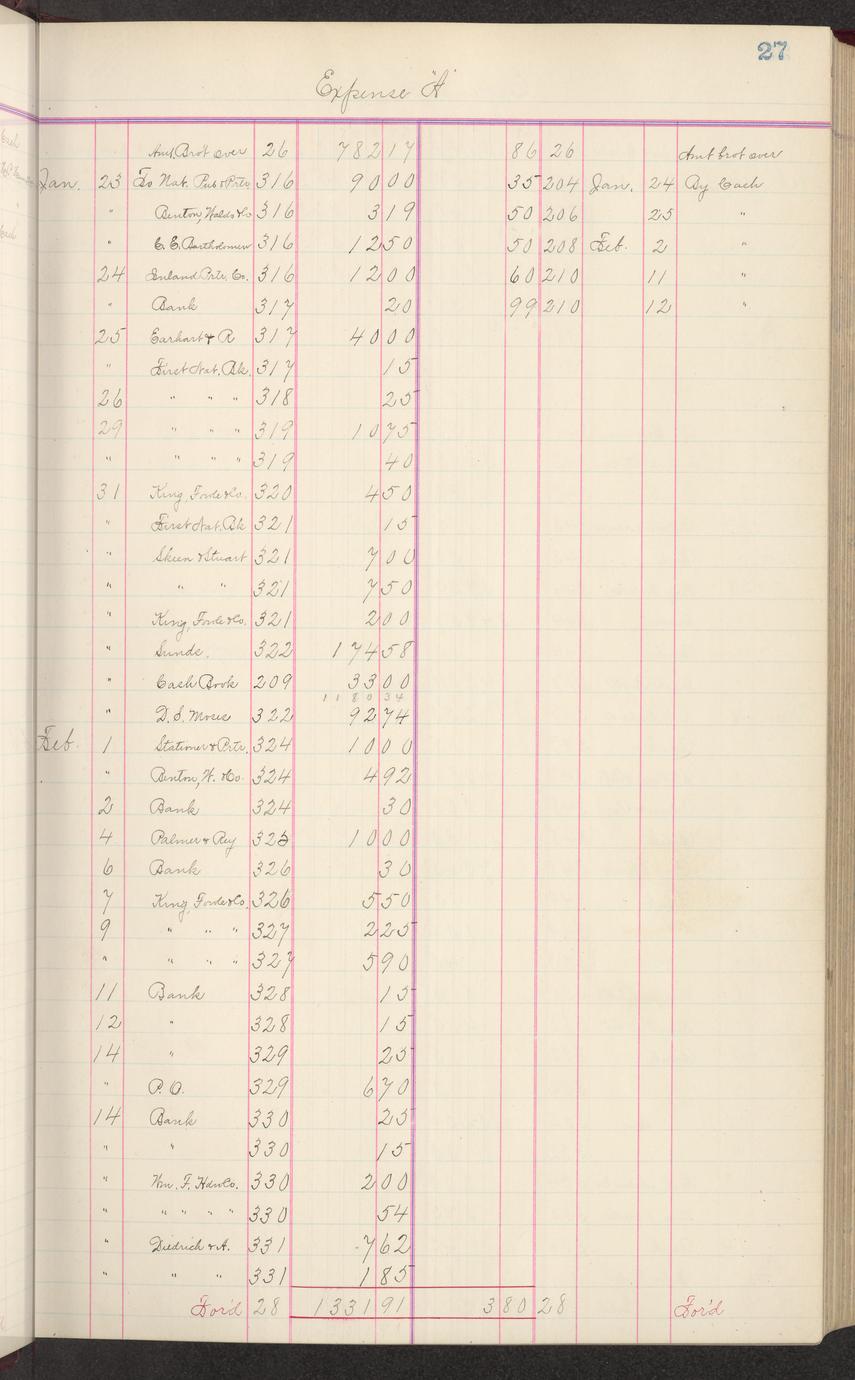 27
Expense "A"
Amt. Bro't over 26 782 17 86 26 Amt brot over
Jan. 23 To Nat. Pub & Prtr 316 90 00 35 204 Jan. 24 By Cash
" Benton, Waldo & Co 316 3 19 50 206 25 "
" C. E. Bartholomew 316 12 50 50 208 Feb. 2 "
24 Inland Prtr. Co. 316 12 00 60 210 11 "
" Bank 317 20 99 210 12 "
25 Earhart & R 317 40 00
" First Nat. Bk. 317 15
26 " " " 318 25
29 " " " 319 10 75
" " " " 319 40
31 King, Forde & Co. 320 4 50
" First Nat. Bk 321 15
" Skeen & Stuart 321 7 00
" " " 321 7 50
" King, Forde & Co. 321 2 00
" Sunds. 322 174 58
" Cash Book 209 33 00
1180 34
" D. S. Moses 322 92 74
Feb. 1 Stationer & Prtr. 324 10 00
" Benton, W. & Co. 324 4 92
2 Bank 324 30
4 Palmer & Rey 325 10 00
6 Bank 326 30
7 King, Forde & Co. 326 5 50
9 " " " 327 2 25
" " " " 327 5 90
11 Bank 328 15
12 " 328 15
14 " 329 25
" P. O. 329 6 70
14 Bank 330 25
" " 330 15
" Wm. F. Hdw Co. 330 2 00
" " " " " 330 54
" Diedrich & A. 331 7 62
" " " 331 1 85
For'd 28 1331 91 380 28 For'd